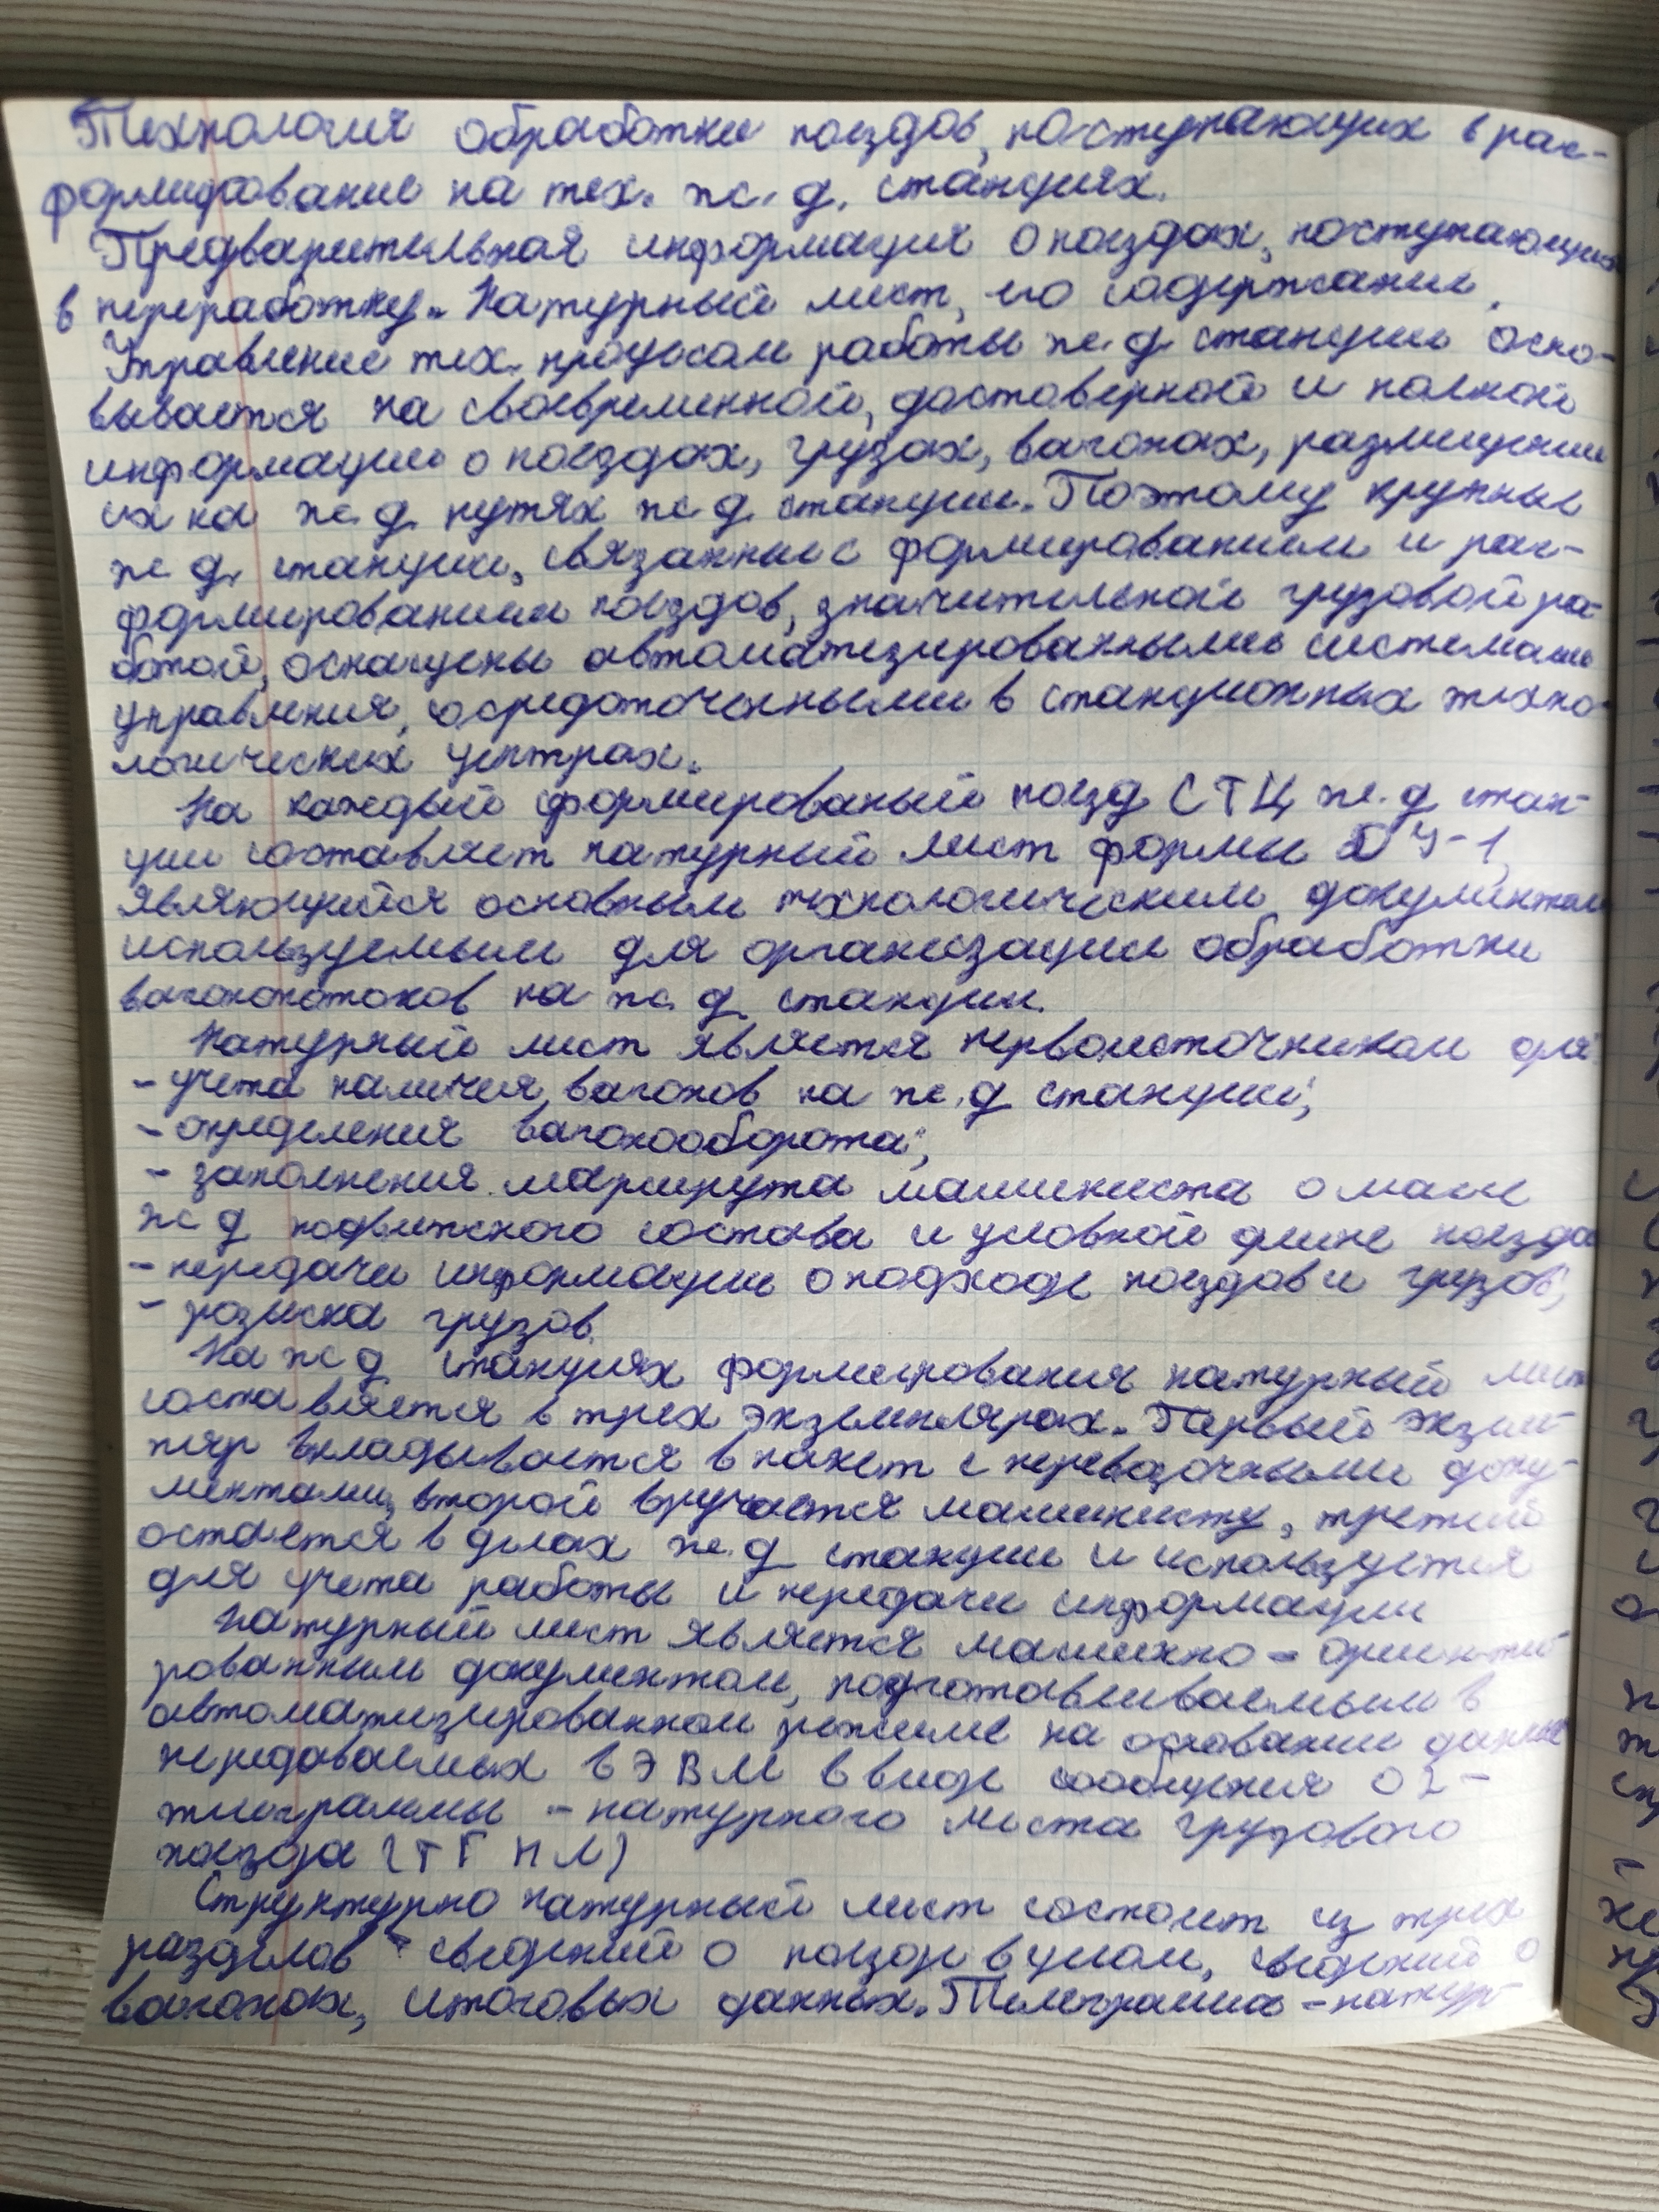 Технология обработки поездов, поступающих в рас-
формирование на тех. ж.д. станциях.
Предварительная информация о поездах, поступающих
в переработку. Натурный лист, его содержание.
Управление тех. процессом работы ж.д. станции осно-
вывается на своевременной, достоверной и полной
информации о поездах, грузах, вагонах, размещении
их на ж.д. путях ж.д. станции. Поэтому крупные
ж.д. станции, связанные с формированием и рас-
формированием поездов, значительной грузовой ра-
ботой, оснащены автоматизированными системами
управления, сосредоточенными в станционных техно-
логических центрах.
На каждый сформированый поезд СТЦ ж.д. стан-
ции составляет натурный лист формы ДУ-1,
являющийся основным технологическим документом
используемым для организации обработки
вагонопотоков на ж.д. станции.
Натурный лист является первоисточником для:
- учета наличия вагонов на ж.д. станции;
- определения вагонооборота;
- заполнения маршрута машиниста о массе
ж.д. подвижного состава и условной длине поезда
- передачи информации о подходе поездов и грузов;
- розыска грузов.
На ж.д. станциях формирования натурный лист
составляется в трех экземплярах. Первый экзем-
пляр вкладывается в пакет с перевозочными доку-
ментами, второй вручается машинисту, третий
остается в делах ж.д. станции и используется
для учета работы и передачи информации
Натурный лист является машинно-ориенти-
рованным документом, подготавливаемым в
автоматизированном режиме на основании данных
передаваемых в ЭВМ в виде сообщения 02-
телеграммы - натурного листа грузового
поезда (ТГНЛ)
Структурно натурный лист состоит из трех
разделов - сведений о поезде в целом, сведений о
вагонах, итоговых данных. Телеграмма - натур-